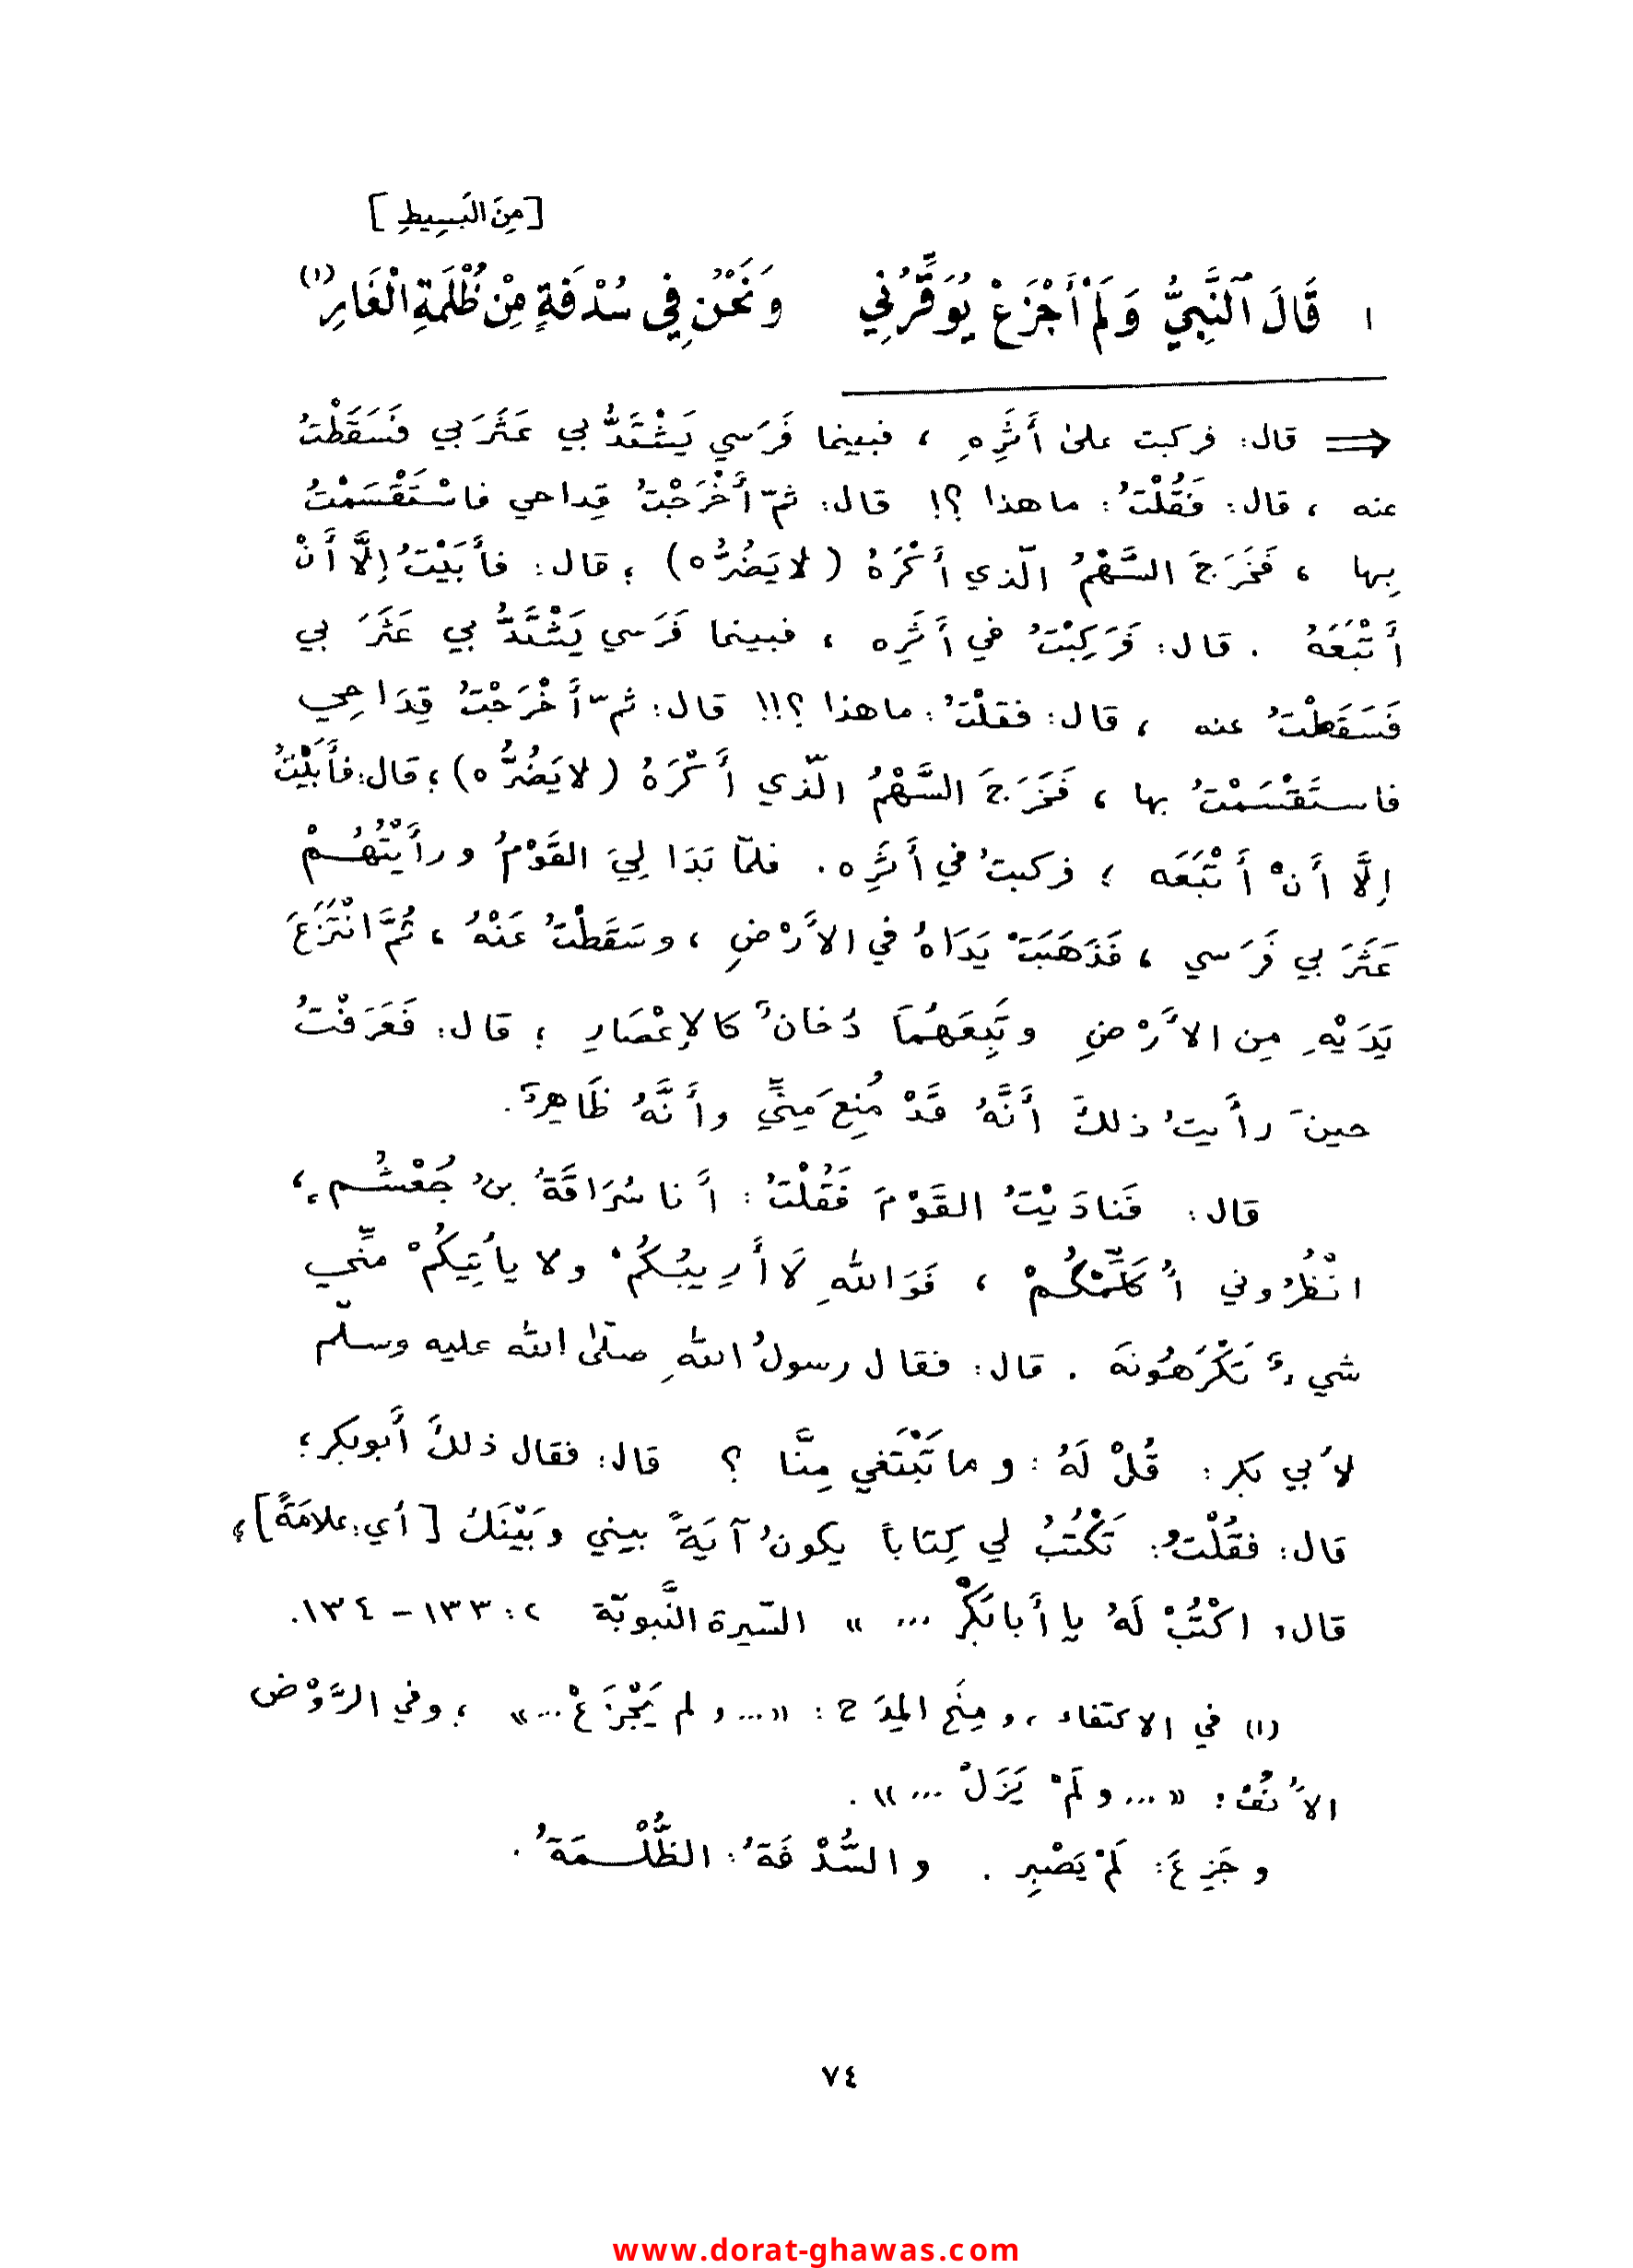 [مِنَ البَسِيطِ]
١ قَالَ ٱلنَّبِيُّ وَلَمْ أَجْزَعْ يُوَقِّرُنِي وَنَحْنُ فِي سُدْفَةٍ مِنْ ظُلْمَةِ الْغَارِ (١)
⇐ قال: فركبت علىٰ أَثَرِهِ ، فبينما فَرَسي يَشْتَدُّ بي عَثَرَ بي فَسَقَطْتُ
عنه ، قال: فَقُلْتُ: ماهذا ؟! قال: ثمّ أَخْرَجْتُ قِداحي فاسْتَقْسَمْتُ
بِها ، فَخَرَجَ السَّهْمُ الّذي أَكْرَهُ (لا يَضُرُّه) ؛ قال: فأَبَيْتُ إلَّا أَنْ
أَتْبَعَهُ . قال: فَرَكِبْتُ في أَثَرِه ، فبينما فَرَسي يَشْتَدُّ بي عَثَرَ بي
فَسَقَطْتُ عنه ، قال: فقلْتُ: ماهذا ؟!! قال: ثمّ أَخْرَجْتُ قِدَاحِي
فاستَقْسَمْتُ بها ، فَخَرَجَ السَّهْمُ الّذي أَكْرَهُ (لا يَضُرُّه) ؛ قال: فأَبَيْتُ
إلَّا أَنْ أَتْبَعَه ؛ فركبتُ في أَثَرِه . فلمّا بَدَا لِيَ القَوْمُ ورأَيْتُهُمْ
عَثَرَ بي فَرَسي ، فَذَهَبَتْ يَدَاهُ في الأَرْضِ ، وسَقَطْتُ عَنْهُ ، ثُمَّ انْتَزَعَ
يَدَيْهِ مِن الأَرْضِ وتَبِعَهُمَا دُخانٌ كالإعْصَارِ ؛ قال: فَعَرَفْتُ
حينَ رأَيتُ ذلكَ أَنَّهُ قَدْ مُنِعَ مِنِّي وأَنَّهُ ظَاهِرٌ .
قال: فَنادَيْتُ القَوْمَ فَقُلْتُ: أَنا سُرَاقَةُ بنُ جُعْشُمٍ ،
انْظُرُوني أُكَلِّمْكُمْ ، فَوَاللهِ لَا أَرِيبُكُمْ ولا يأْتِيكُمْ منِّي
شيءٌ تَكْرَهُونَهُ . قال: فقال رسولُ اللهِ صلّىٰ الله عليه وسلّم
لأبي بكر: قُلْ لَهُ: وما تَبْتَغي مِنَّا ؟ قال: فقال ذلكَ أَبوبكر ؛
قال: فقُلْتُ: تَكْتُبُ لي كِتاباً يكونُ آيَةً بيني وبَيْنَكَ [أي: علامَةً] ؛
قال: اكْتُبْ لَهُ يا أَبا بَكْرٍ ... » السّيرة النَّبويّة ٢: ١٣٣ - ١٣٤ .
(١) في الاكتفاء ، ومِنَح المِدَح : «... ولم يَجْزَعْ ...» ؛ وفي الرَّوْض
الأُنُف: «... ولَمْ يَزَلْ ...» .
وجَزِعَ: لَمْ يَصْبِر . والسُّدْفَةُ: الظُّلْمَةُ .
٧٤
www.dorat-ghawas.com